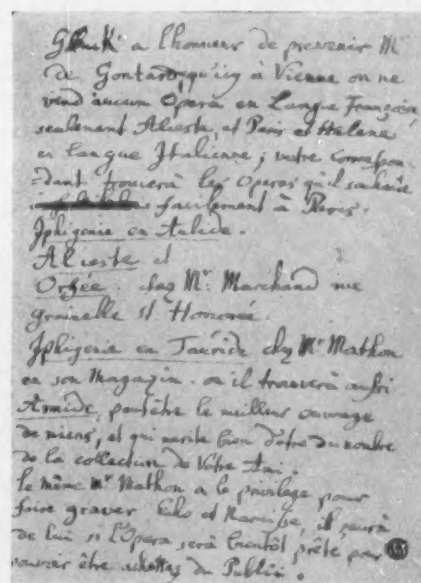 Gluck a l'honneur de prevenir Mr
de Gontard qu'icy à Vienne on ne
vend aucun Opera en Langue Françoise
seulement Alceste, et Paris et Helene
en langue Italienne; votre Correspon-
-dant trouverà les Operas qu'il souhaite
faciliement à Paris.
Iphigenie en Aulide.
Alceste et
Orfée. chez Mr. Marchand rue
grainelle St Honoreé.
Iphigenie en Tauride chez Mr Mathon
en son Magazin. ou il trouverà aussi
Armide, peutêtre le meilleur ouvrage
de miens, et qui merite bien d'être du nombre
de la collection de Votre Ami.
le même Mr Mathon a le privilege pour
faire graver Echo et Narcisse, il saurà
de lui si l'Opera serà bientôt prête, pour
pouvoir être achettès du Publiq.